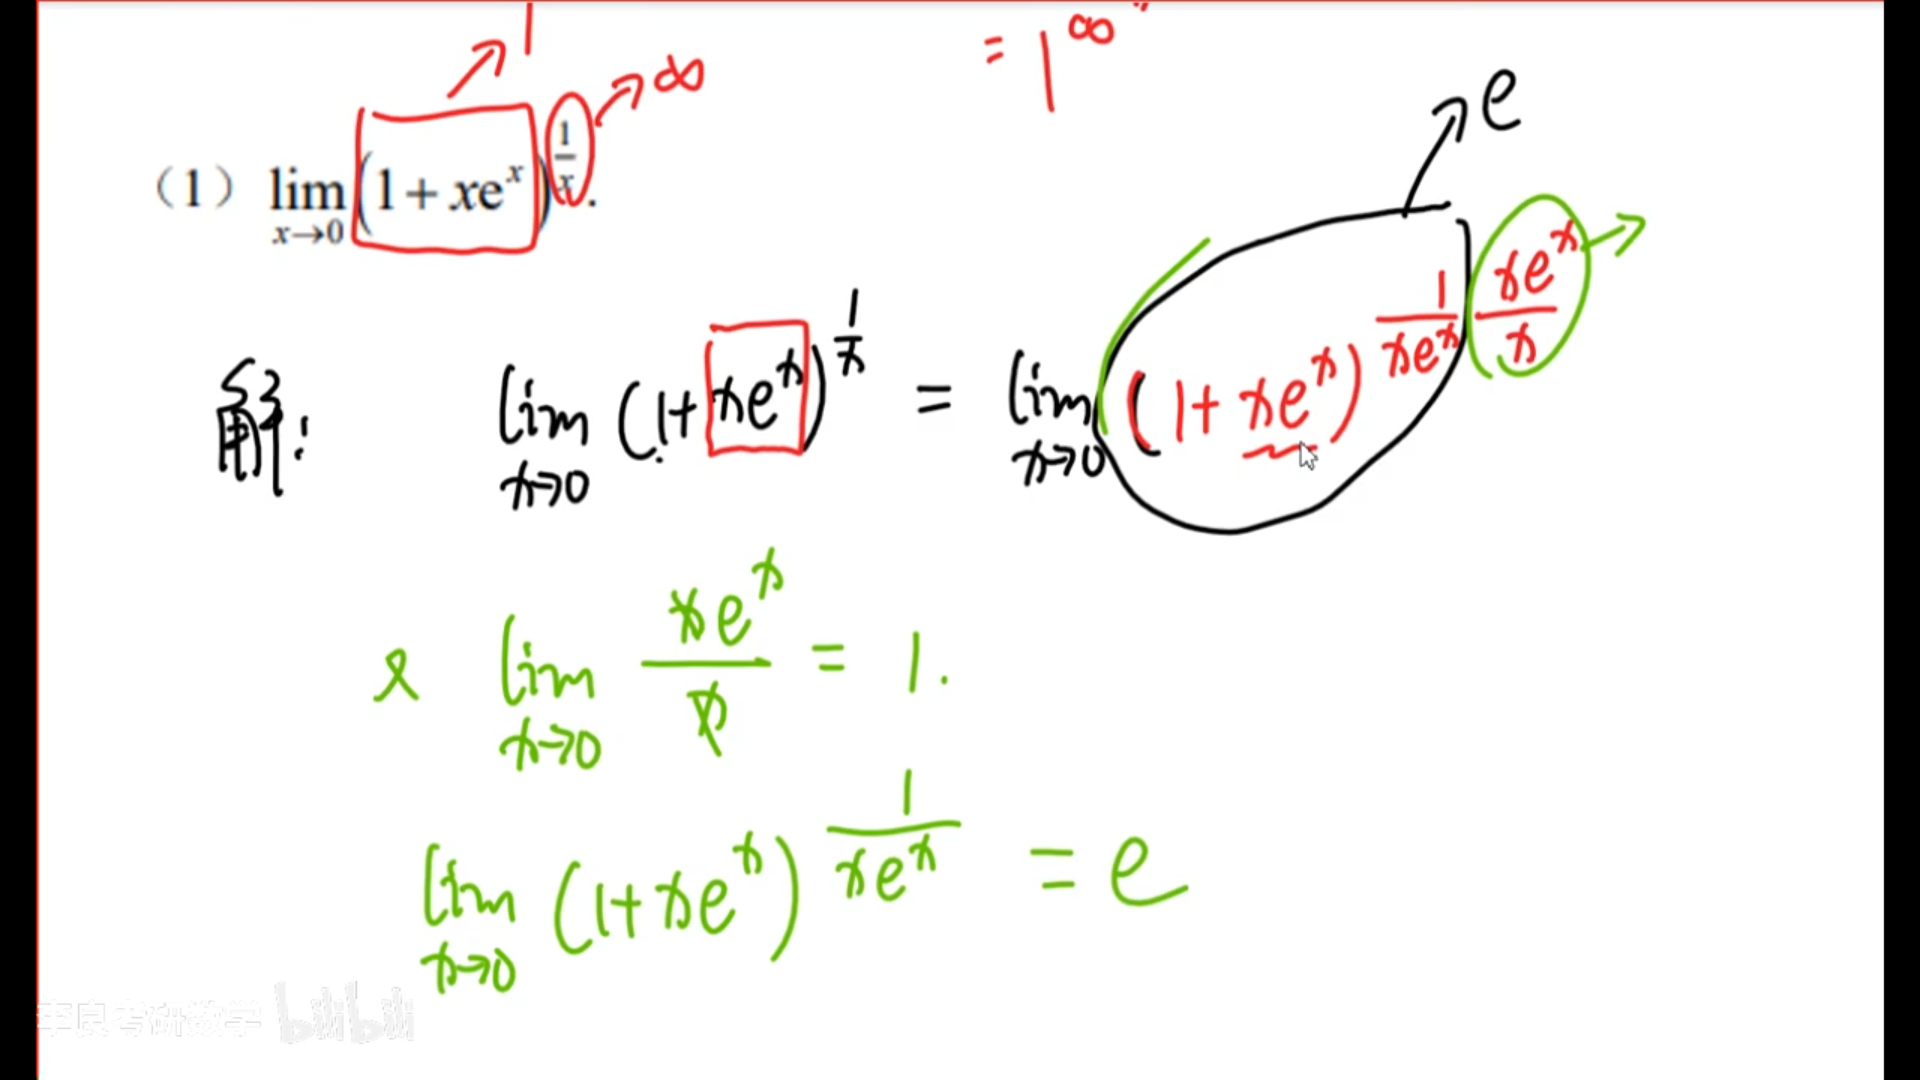 = 1^∞
→ 1
→ ∞
→ e
（1） lim_{x→0} (1 + xe^x)^{1/x}.
解: lim_{x→0} (1+xe^x)^{1/x} = lim_{x→0} [(1+xe^x)^{1/(xe^x)}]^{xe^x/x} →
又 lim_{x→0} xe^x/x = 1.
lim_{x→0} (1+xe^x)^{1/(xe^x)} = e
李良考研数学 bilibili